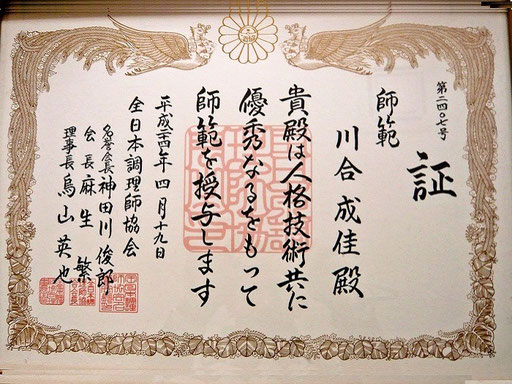 第二四〇七号
証
師範
川合成佳殿
貴殿は人格技術共に
優秀なるをもって
師範を授与します
平成二四年四月十九日
全日本調理師協会
名誉会長神田川俊郎
会長麻生繁
理事長鳥山英也